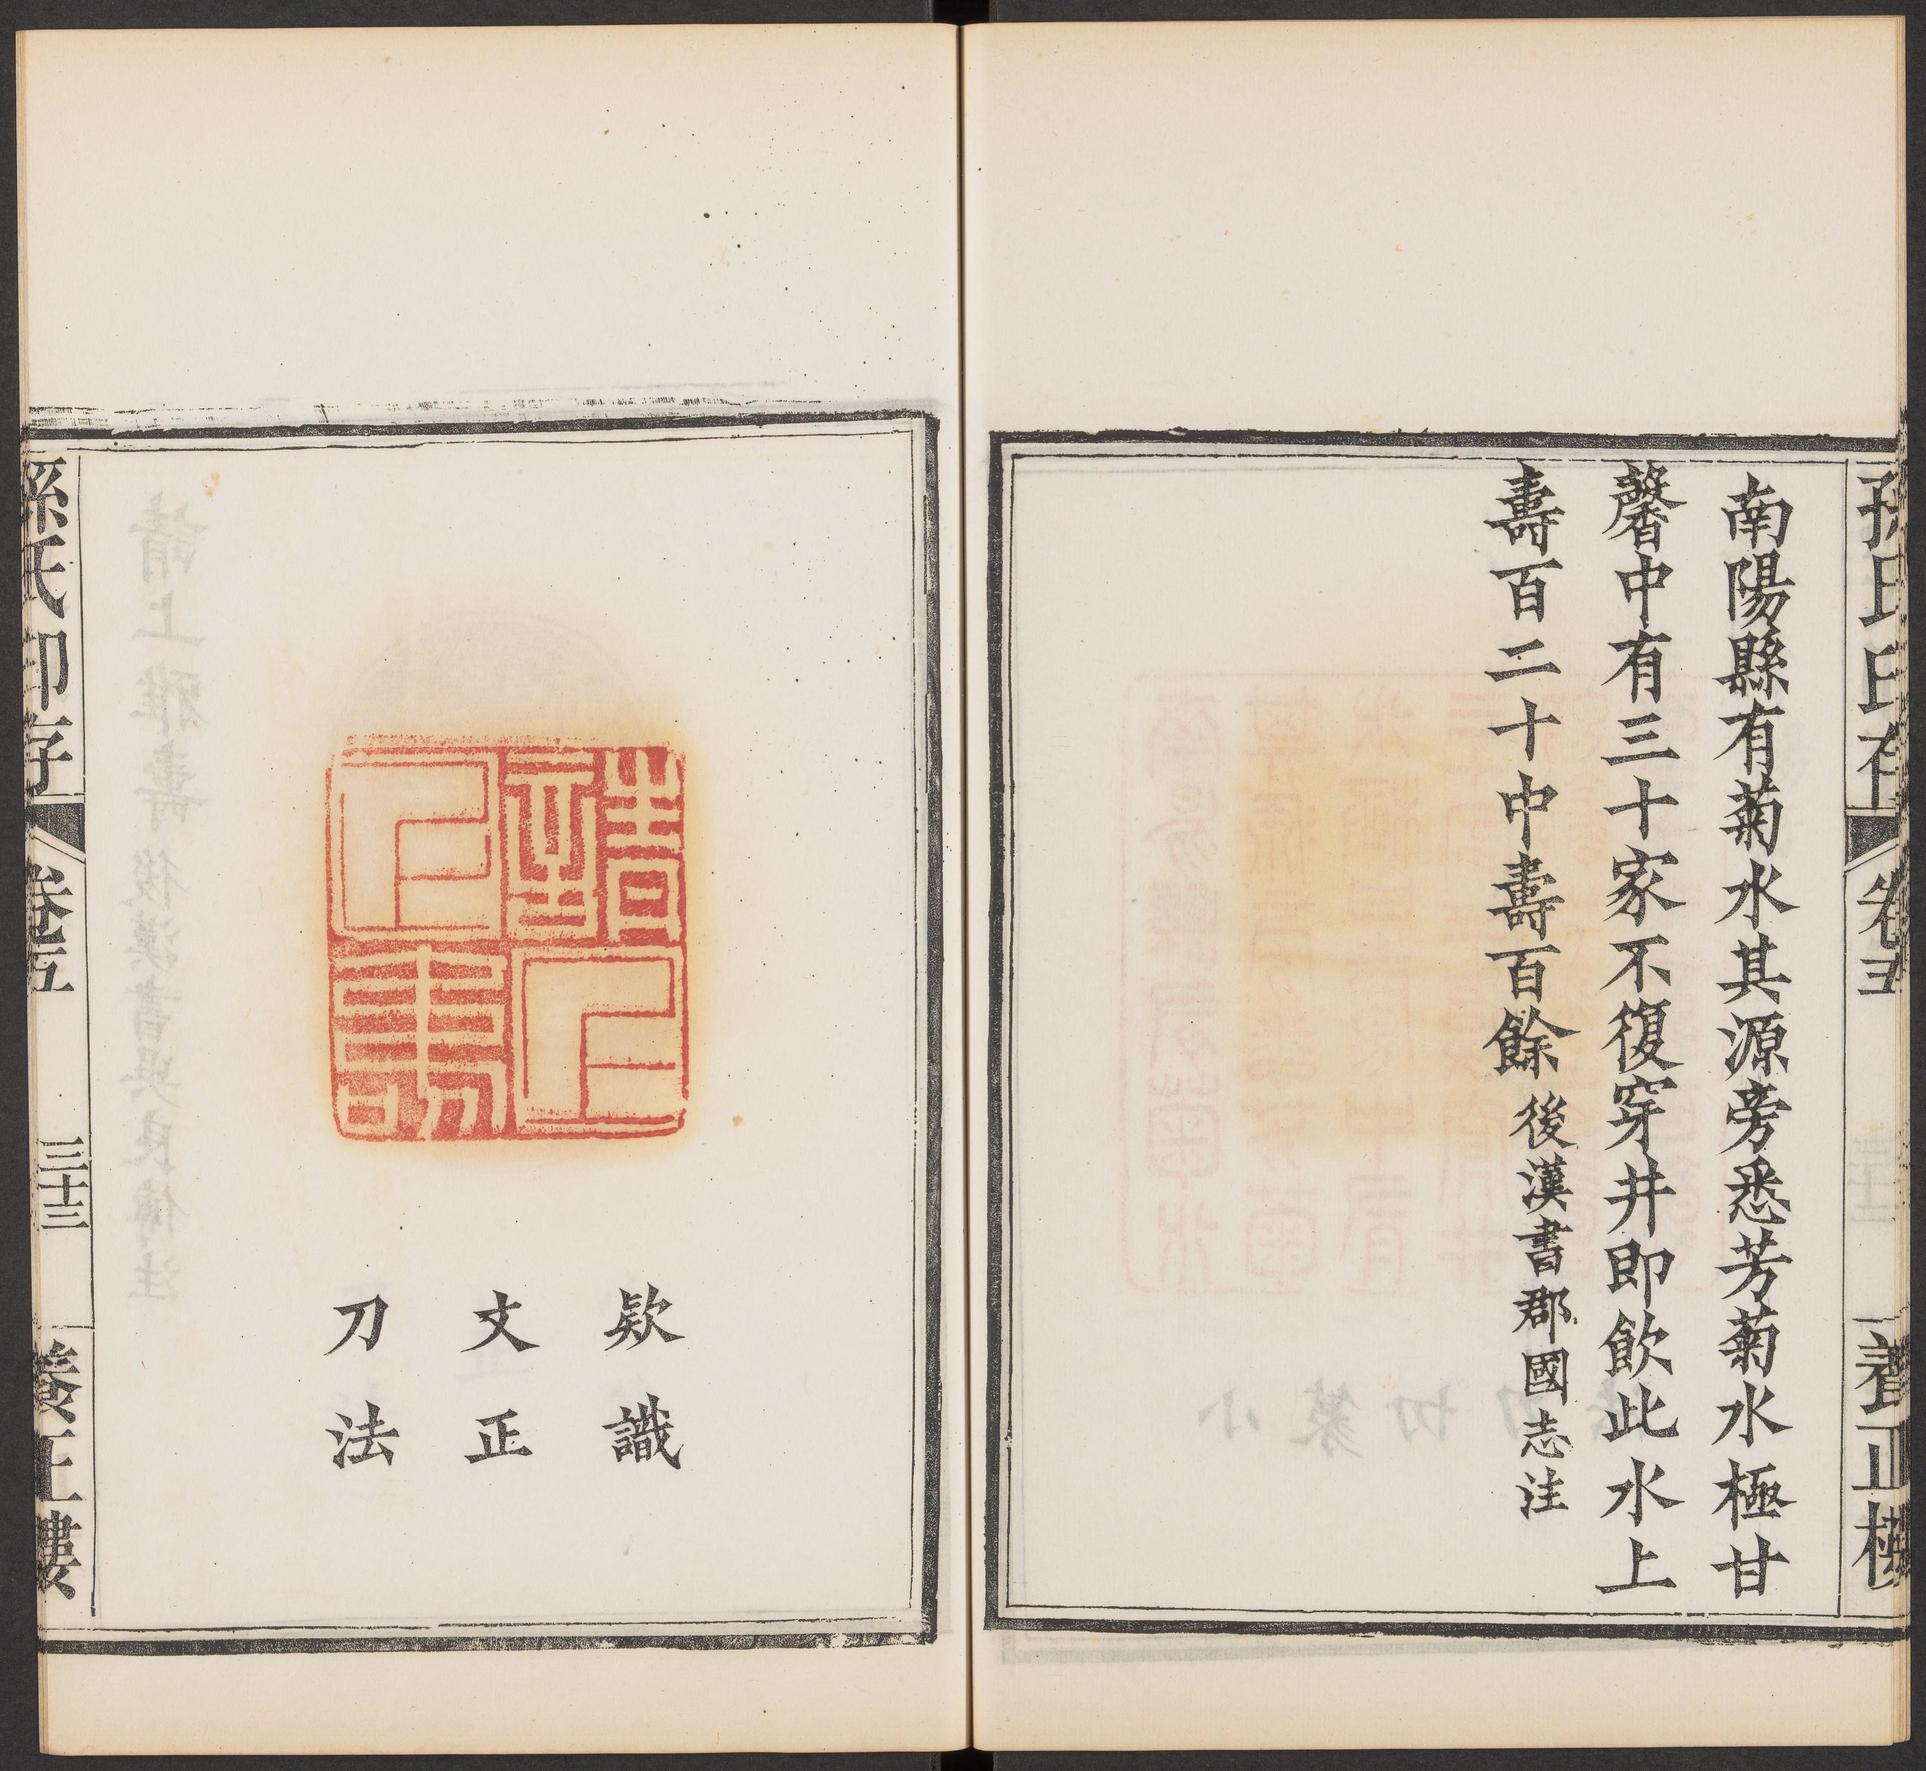 孫氏印存 卷五 養正樓
南陽縣有菊水其源旁悉芳菊水極甘
馨中有三十家不復穿井即飲此水上
壽百二十中壽百餘 後漢書郡國志注
欵識
文正
刀法
孫氏印存 卷五 三十三 養正樓